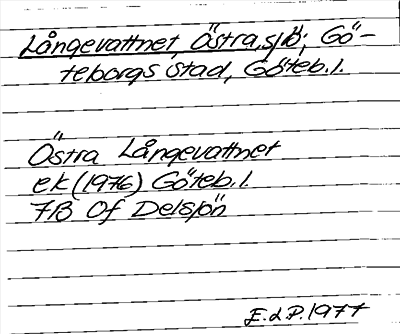 Långevattnet, Östra, sjö, Gö-
teborgs stad, Göteb. l.
Östra Långevattnet
ek (1976) Göteb. l.
7B Of Delsjön
E.d.P. 1977